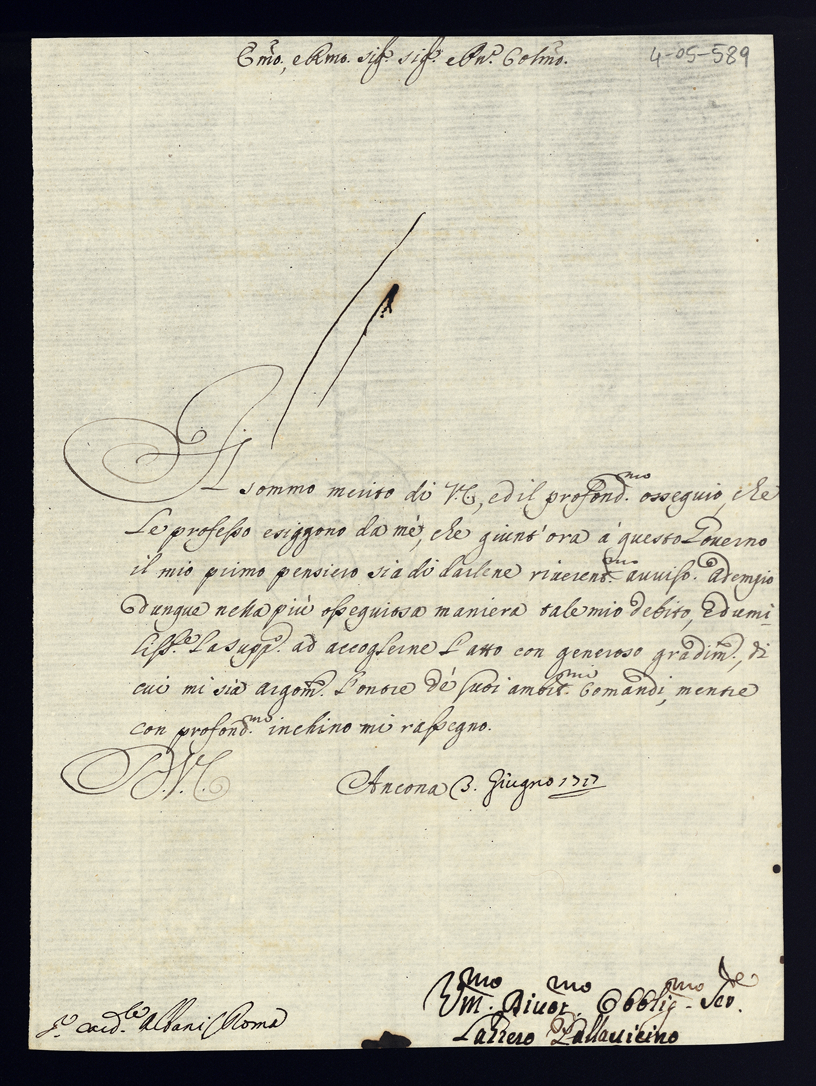 Em̃o, e Rmo. sig.r sig.r e Pn̄e Colm̃o.
4-05-589
Il sommo merito di V.E., ed il profond.mo ossequio, che
Le professo esiggono da mè, che giunt'ora à questo Governo
il mio primo pensiero sia di darlene riverent.mo avviso. Adempio
dunque nella più osseguiosa maniera tale mio debito, ed umi-
liss.te la supp.o ad accoglerne l'atto con generoso gradim.o, di
cui mi sia argom.o l'onore de' suoi ambit.mi Comandi, mentre
con profond.mo inchino mi rassegno.
D.V.E. Ancona 3. Giugno 1717
S.r Card.le Albani Roma
Um.mo Divot.mo Obblig.mo Ser.re
Lazzero Pallavicino